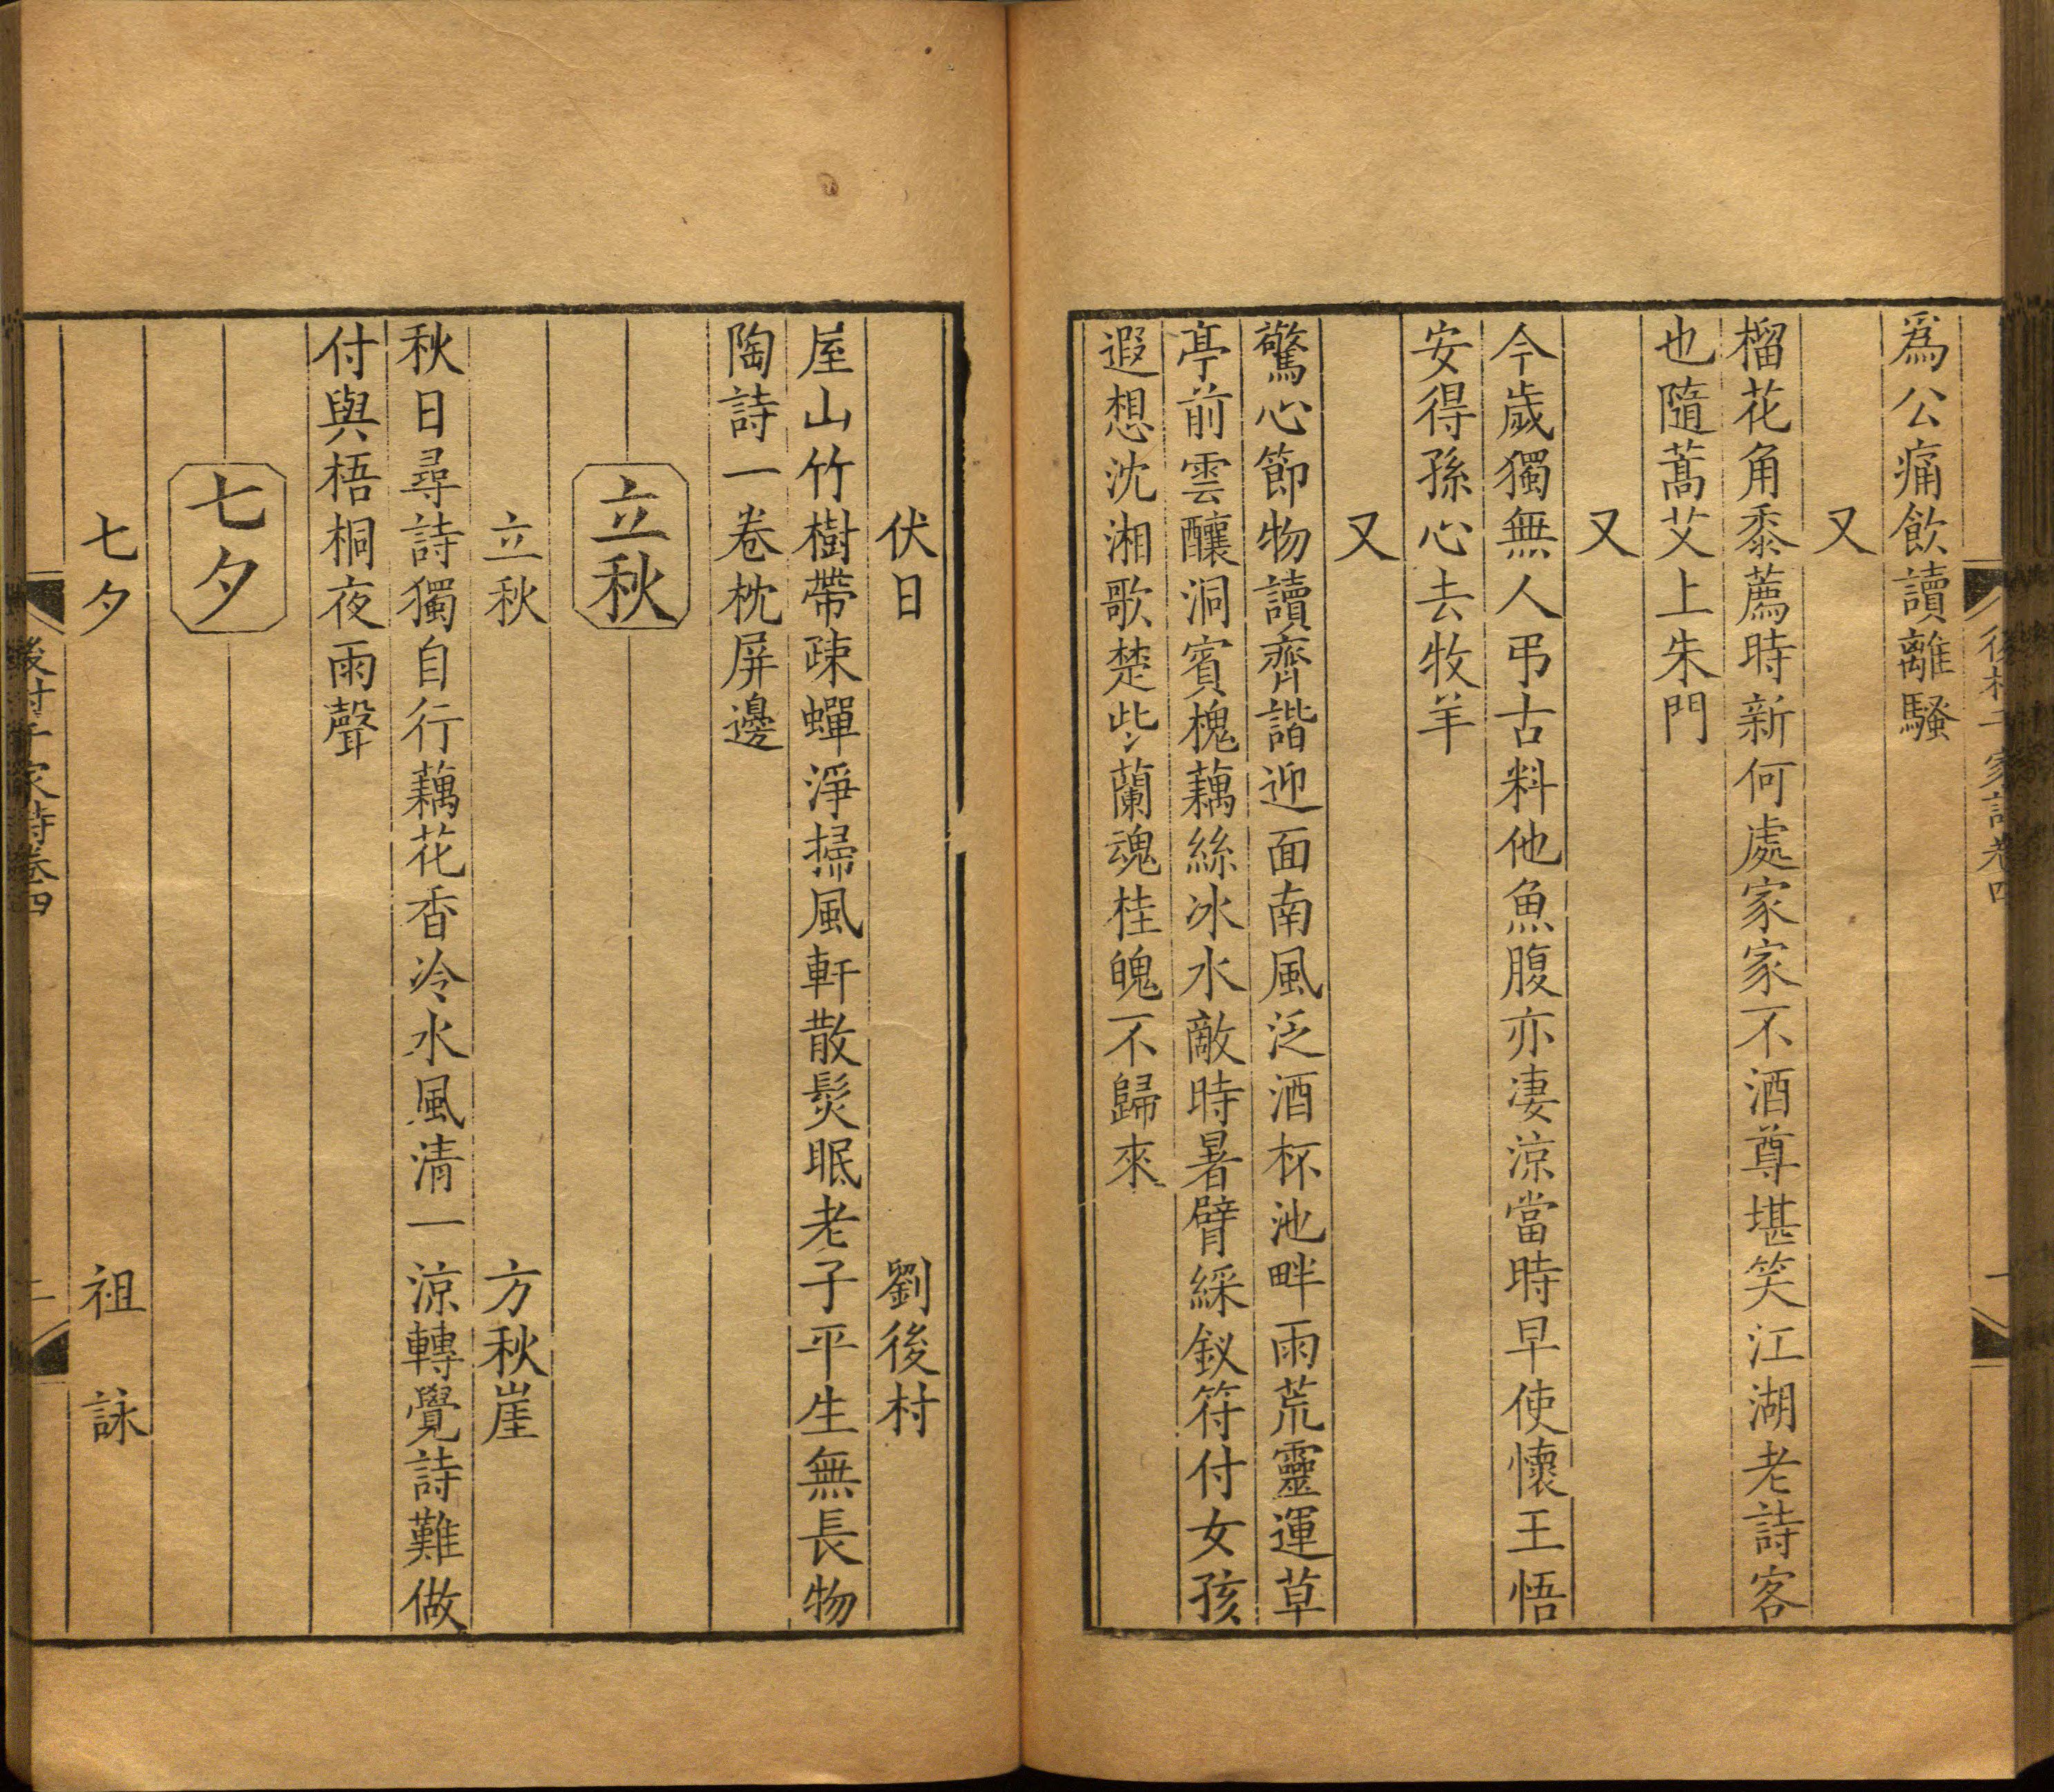 後村千家詩卷四
一
爲公痛飲讀離騷
又
榴花角黍薦時新何處家家不酒尊堪笑江湖老詩客
也隨蒿艾上朱門
又
今歲獨無人弔古料他魚腹亦凄涼當時早使懷王悟
安得孫心去牧羊
又
驚心節物讀齊諧迎面南風泛酒杯池畔雨荒靈運草
亭前雲釀洞賓槐藕絲冰水敵時暑臂綵釵符付女孩
遐想沈湘歌楚些蘭魂桂魄不歸來
伏日 劉後村
屋山竹樹帶疎蟬淨掃風軒散髮眠老子平生無長物
陶詩一卷枕屏邊
立秋
立秋 方秋崖
秋日尋詩獨自行藕花香冷水風清一涼轉覺詩難做
付與梧桐夜雨聲
七夕
七夕 祖詠
後村千家詩卷四
二